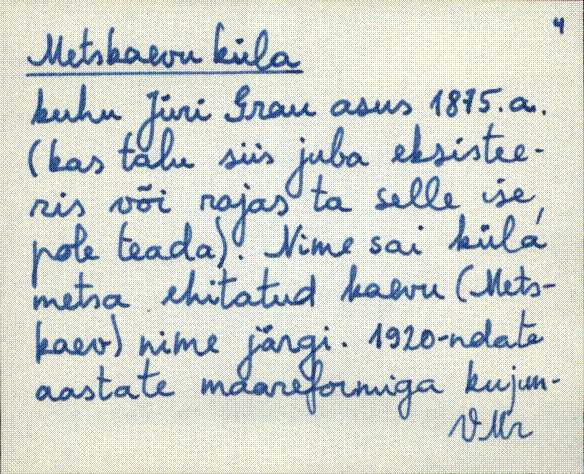 4
Metskaevu küla
kuhu Jüri Grau asus 1875.a.
(kas talu siis juba eksistee-
ris või rajas ta selle ise,
pole teada). Nime sai küla
metsa ehitatud kaevu (Mets-
kaev) nime järgi. 1920-ndate
aastate maareformiga kujun-
VMr